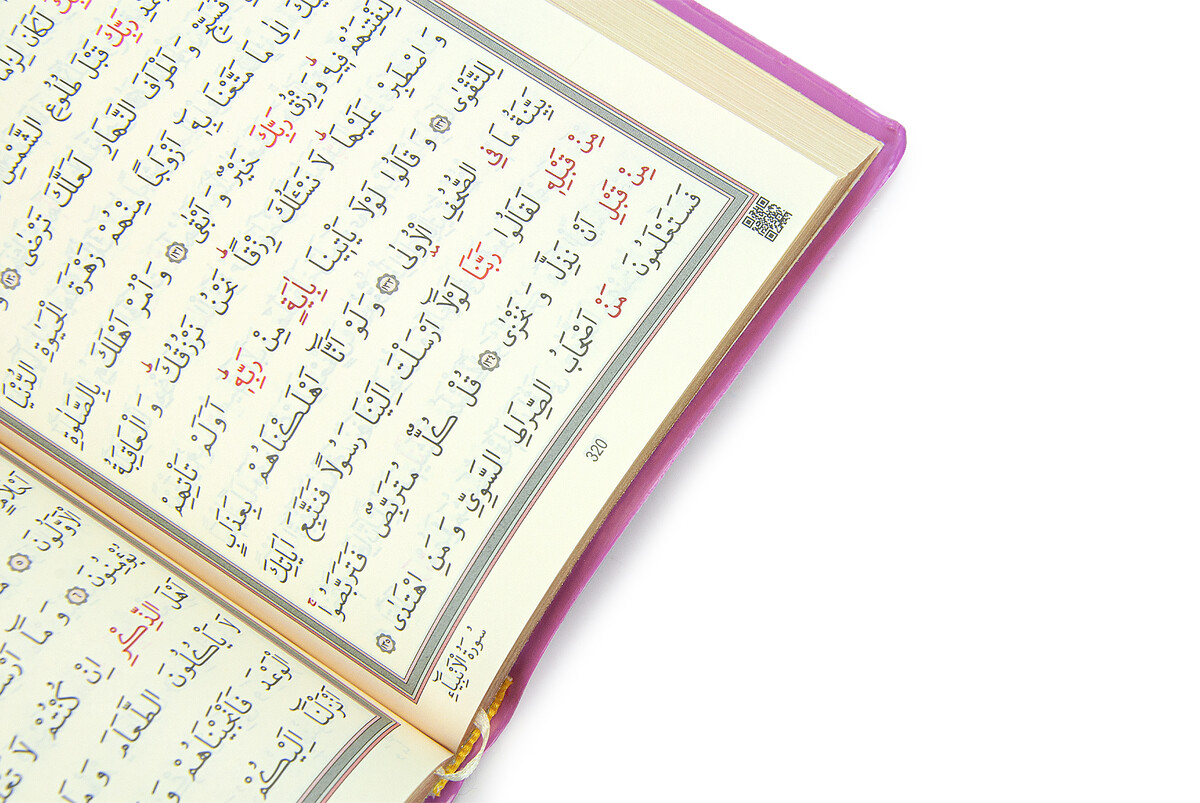 لَكَانَ لِزَامًا
رَبِّكَ قَبْلَ طُلُوعِ الشَّمْسِ
فَسَبِّحْ وَ اَطْرَافَ النَّهَارِ لَعَلَّكَ تَرْضٰى ﴿١٣٠﴾ وَ
اِلٰى مَا مَتَّعْنَا بِه۪ٓ اَزْوَاجًا مِنْهُمْ زَهْرَةَ الْحَيٰوةِ الدُّنْيَا
لِنَفْتِنَهُمْ فِيهِ وَ رِزْقُ رَبِّكَ خَيْرٌ وَ اَبْقٰى ﴿١٣١﴾ وَ أْمُرْ اَهْلَكَ بِالصَّلٰوةِ
وَ اصْطَبِرْ عَلَيْهَا لَا نَسْئَلُكَ رِزْقًا نَحْنُ نَرْزُقُكَ وَ الْعَاقِبَةُ
لِلتَّقْوٰى ﴿١٣٢﴾ وَ قَالُوا لَوْلَا يَأْتِينَا بِاٰيَةٍ مِنْ رَبِّه۪ اَوَلَمْ تَأْتِهِمْ
بَيِّنَةُ مَا فِى الصُّحُفِ الْاُولٰى ﴿١٣٣﴾ وَ لَوْ اَنَّٓا اَهْلَكْنَاهُمْ بِعَذَابٍ
مِنْ قَبْلِه۪ لَقَالُوا رَبَّنَا لَوْلَٓا اَرْسَلْتَ اِلَيْنَا رَسُولًا فَنَتَّبِعَ اٰيَاتِكَ
مِنْ قَبْلِ اَنْ نَذِلَّ وَ نَخْزٰى ﴿١٣٤﴾ قُلْ كُلٌّ مُتَرَبِّصٌ فَتَرَبَّصُوا
فَسَتَعْلَمُونَ مَنْ اَصْحَابُ الصِّرَاطِ السَّوِىِّ وَ مَنِ اهْتَدٰى ﴿١٣٥﴾
320
سُورَةُ الْاَنْبِيَٓاءِ
الْاَوَّلُونَ ﴿٥﴾
يُؤْمِنُونَ ﴿٦﴾ وَ مَٓا
اَهْلَ الذِّكْرِ اِنْ كُنْتُمْ لَا
لَا يَأْكُلُونَ الطَّعَامَ وَ
الْوَعْدَ فَاَنْجَيْنَاهُمْ
اَنْزَلْنَٓا اِلَيْكُمْ